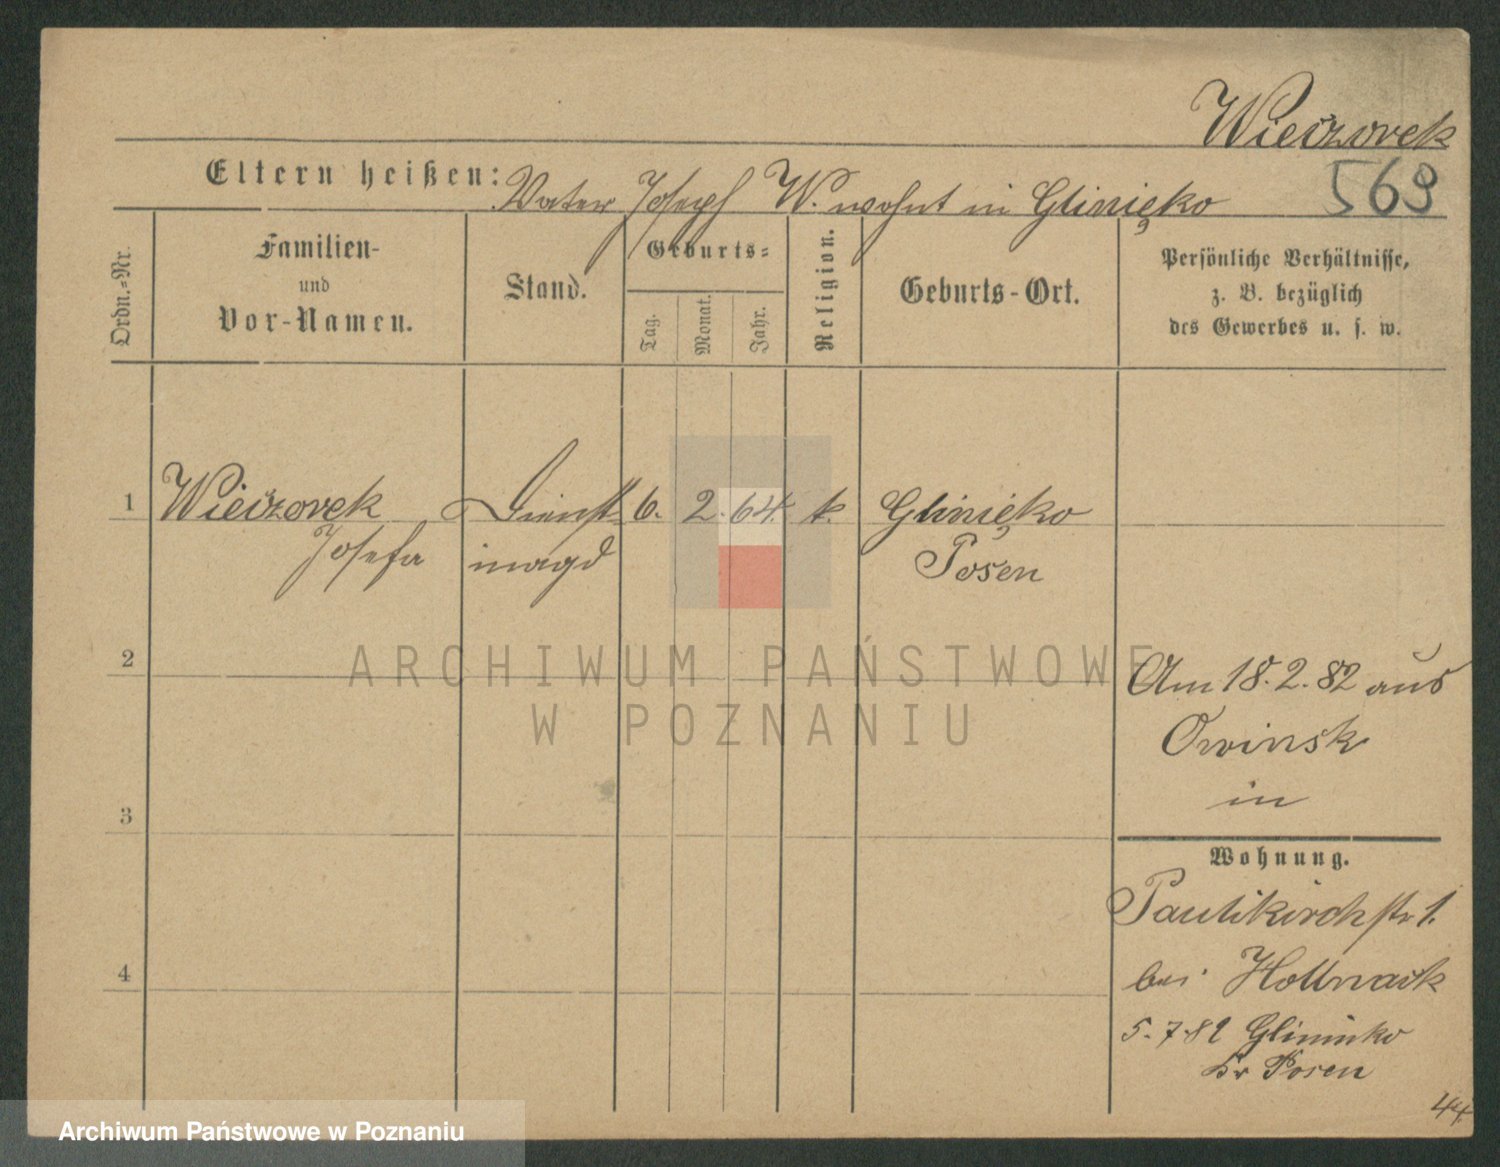 Wieczorek
Eltern heißen: Vater Joseph W. wohnt in Glinięko
569
Ordn.-Nr.
Familien-
und
Vor-Namen.
Stand.
Geburts-
Tag.
Monat.
Jahr.
Religion.
Geburts-Ort.
Persönliche Verhältnisse,
z. B. bezüglich
des Gewerbes u. s. w.
1 Wieczorek Dienst- 6. 2. 64. k. Glinięko
Josefa magd Posen
2
Am 18.2.82 aus
Owinsk
in
3
Wohnung.
Paulikirchstr 1.
bei
4
5.7.82 Glininko
Kr Posen
44.
ARCHIWUM PAŃSTWOWE
W POZNANIU
Archiwum Państwowe w Poznaniu